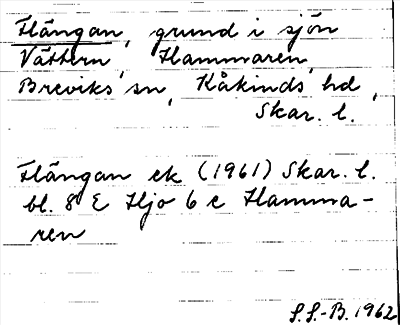 Flängan, grund i sjön
Vättern, Hammaren,
Breviks sn, Kåkinds hd,
Skar. l.
Flängan ek (1961) Skar. l.
bl. 8 E Hjo 6 c Hamma-
ren
S.S.-B. 1962